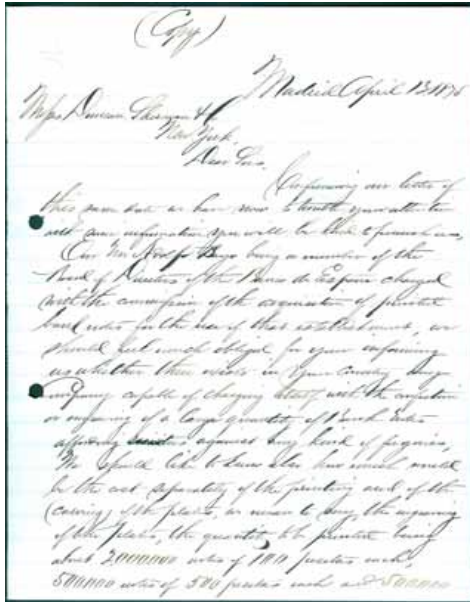 (Copy)
Madrid April 13, 1875
Messrs Duncan, Sherman & Co
New York.
Dear Sirs.
Confirming our letter of
this same date we have now to trouble your attention
with some information you will be kind to furnish us.
Our Mr Adolfo Bayo being a member of the
Board of Directors of the Banco de España charged
with the commission of the acquisition of printed
bank notes for the use of that establishment, we
should feel much obliged for your informing
us whether there exists in your country any
Company capable of charging itself with the confection
or engraving of a large quantity of Bank notes
affording against any kind of forgeries,
We should like to know also how much would
be the cost separately of the printing and of the
(carving) of the plates, we mean to say, the engraving
of the plates, the quantity to be printed being
about 2.000.000 notes of 100 pesetas each,
500.000 notes of 500 pesetas each and 500.000